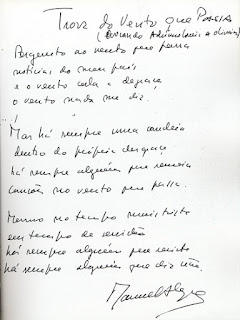 Trova do Vento que Passa
(Evocando Adriano Correia de Oliveira)
Pergunto ao vento que passa
notícias do meu país
e o vento cala a desgraça
o vento nada me diz.
Mas há sempre uma candeia
dentro da própria desgraça
há sempre alguém que semeia
canções no vento que passa.
Mesmo na tempo mais triste
em tempo de servidão
há sempre alguém que resiste
há sempre alguém que diz não.
Manuel Alegre